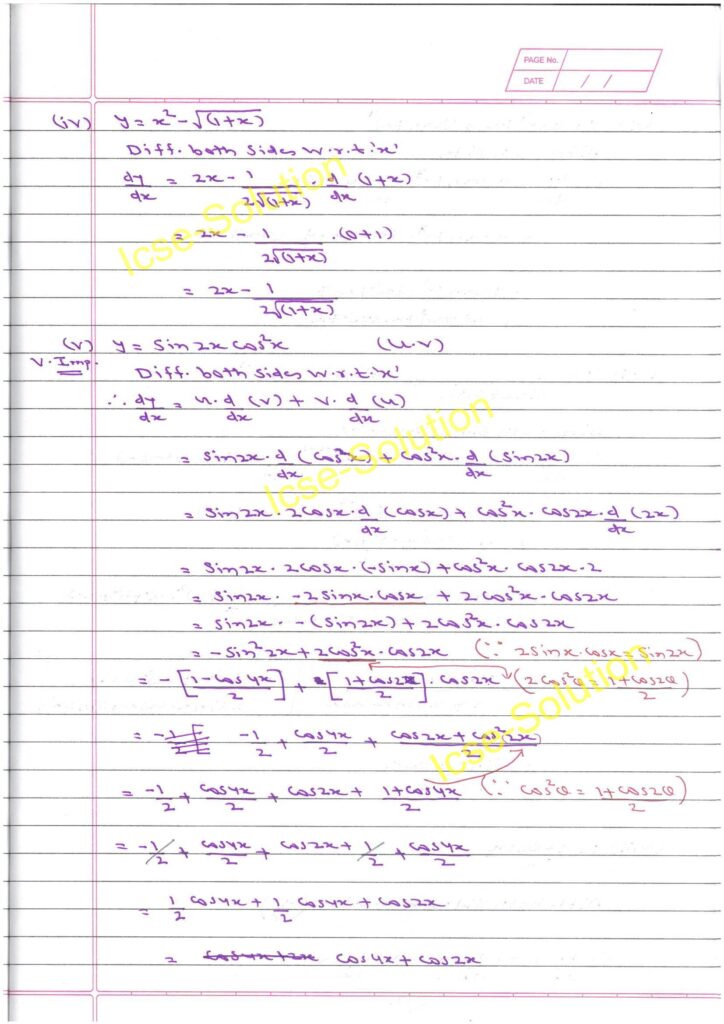 PAGE No.
DATE / /
(iv) y = x² - √(1+x)
Diff. both sides w.r.t. 'x'
dy/dx = 2x - 1/2√(1+x) · d/dx (1+x)
= 2x - 1/2√(1+x) · (0+1)
= 2x - 1/2√(1+x)
(v) y = Sin2x cos²x (u.v)
V. Imp.
Diff. both sides w.r.t. 'x'
∴ dy/dx = u · d/dx (v) + v · d/dx (u)
= Sin2x · d/dx (cos²x) + cos²x · d/dx (Sin2x)
= Sin2x · 2cosx · d/dx (cosx) + cos²x · cos2x · d/dx (2x)
= Sin2x · 2cosx · (-sinx) + cos²x · cos2x · 2
= Sin2x · -2sinx · cosx + 2cos²x · cos2x
= Sin2x · -(Sin2x) + 2cos²x · cos2x
= -Sin²2x + 2cos²x · cos2x (∵ 2Sinx · cosx = Sin2x)
= -[1-cos4x/2] + [1+cos2x/2] · cos2x (2cos²θ = 1+cos2θ/2)
= -1/2 + cos4x/2 + cos2x + cos²2x/2
= -1/2 + cos4x/2 + cos2x + 1+cos4x/2 (∵ cos²θ = 1+cos2θ/2)
= -1/2 + cos4x/2 + cos2x + 1/2 + cos4x/2
= 1/2 cos4x + 1/2 cos4x + cos2x
= cos4x + cos2x
Icse-Solution
Icse-Solution
Icse-Solution